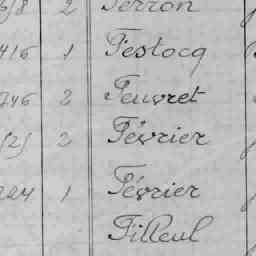 2 Perron
416 1 Festocq
746 2 Feuvret
(2) 2 Février
224 1 Février
Filleul